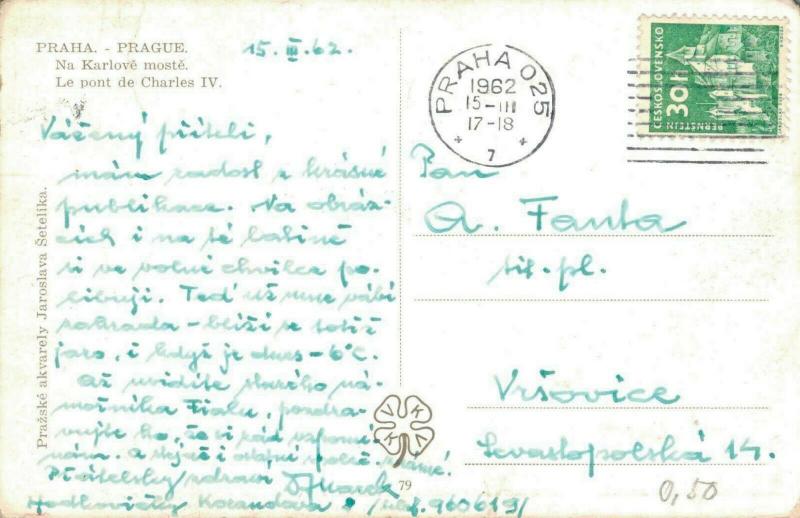 PRAHA. - PRAGUE.
Na Karlově mostě.
Le pont de Charles IV.
15. III. 62.
Vážený příteli,
mám radost z krásné
publikace. Na obráz-
cích i na té latině
si ve volné chvilce po-
libuji. Teď už mne vábí
zahrada - blíží se totiž
jaro, i když je dnes -6°C.
Až uvidíte starého ná-
mořníka Fialu, pozdra-
vujte ho, že si rád vzpomí-
nám. a
Přátelsky zdraví
Hodkovičky
/tel. 960619/
Pražské akvarely Jaroslava Šetelíka.
VKKV
79
PRAHA 025
1962
15-III
17-18
7
ČESKOSLOVENSKO
30h
BERNSTEJN
Pan
A. Fanta
Vršovice
Sevastopolská 14.
0,50